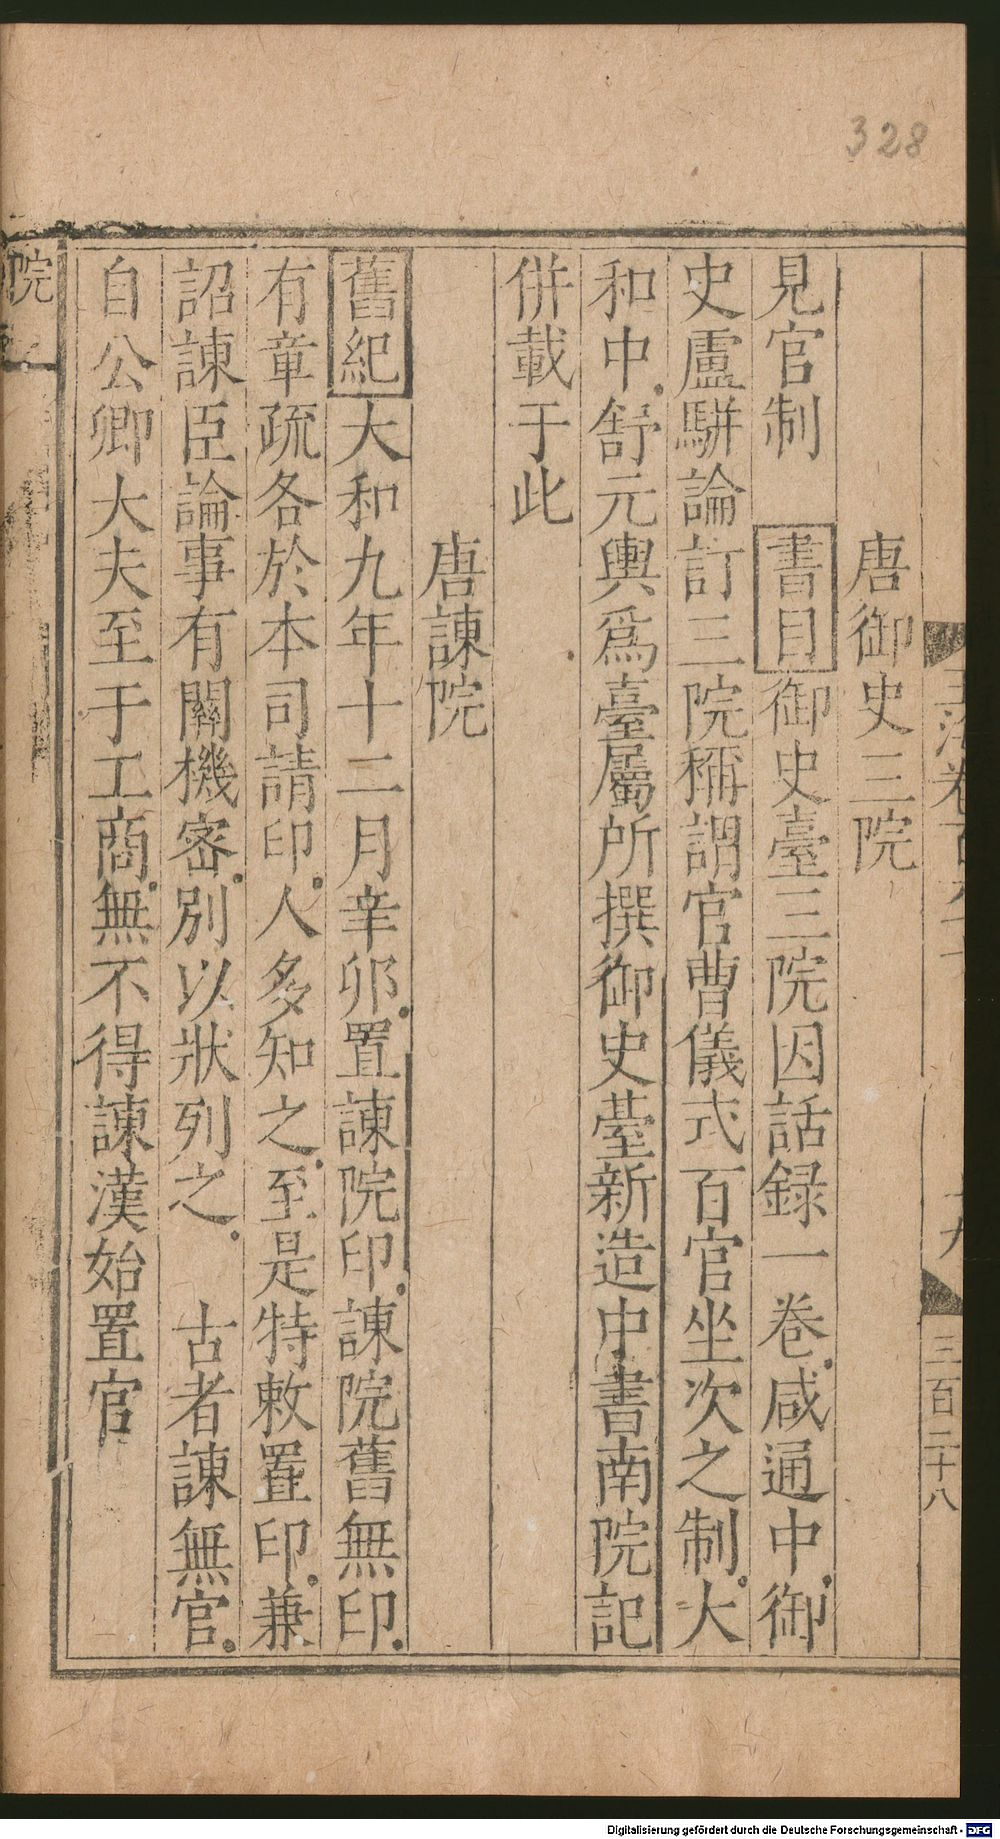 328
唐御史三院
見官制　書目御史臺三院因話録一卷咸通中御
史盧駢論訂三院稱謂官曹儀式百官坐次之制大
和中舒元輿爲臺屬所撰御史䑓新造中書南院記
併載于此
唐諫院
舊紀大和九年十二月辛卯置諫院印諫院舊無印
有章疏各於本司請印人多知之至是特敕置印兼
詔諫臣論事有關機密别以狀列之　古者諫無官
自公卿大夫至于工商無不得諫漢始置官
院
十九
三百二十八
Digitalisierung gefördert durch die Deutsche Forschungsgemeinschaft - DFG